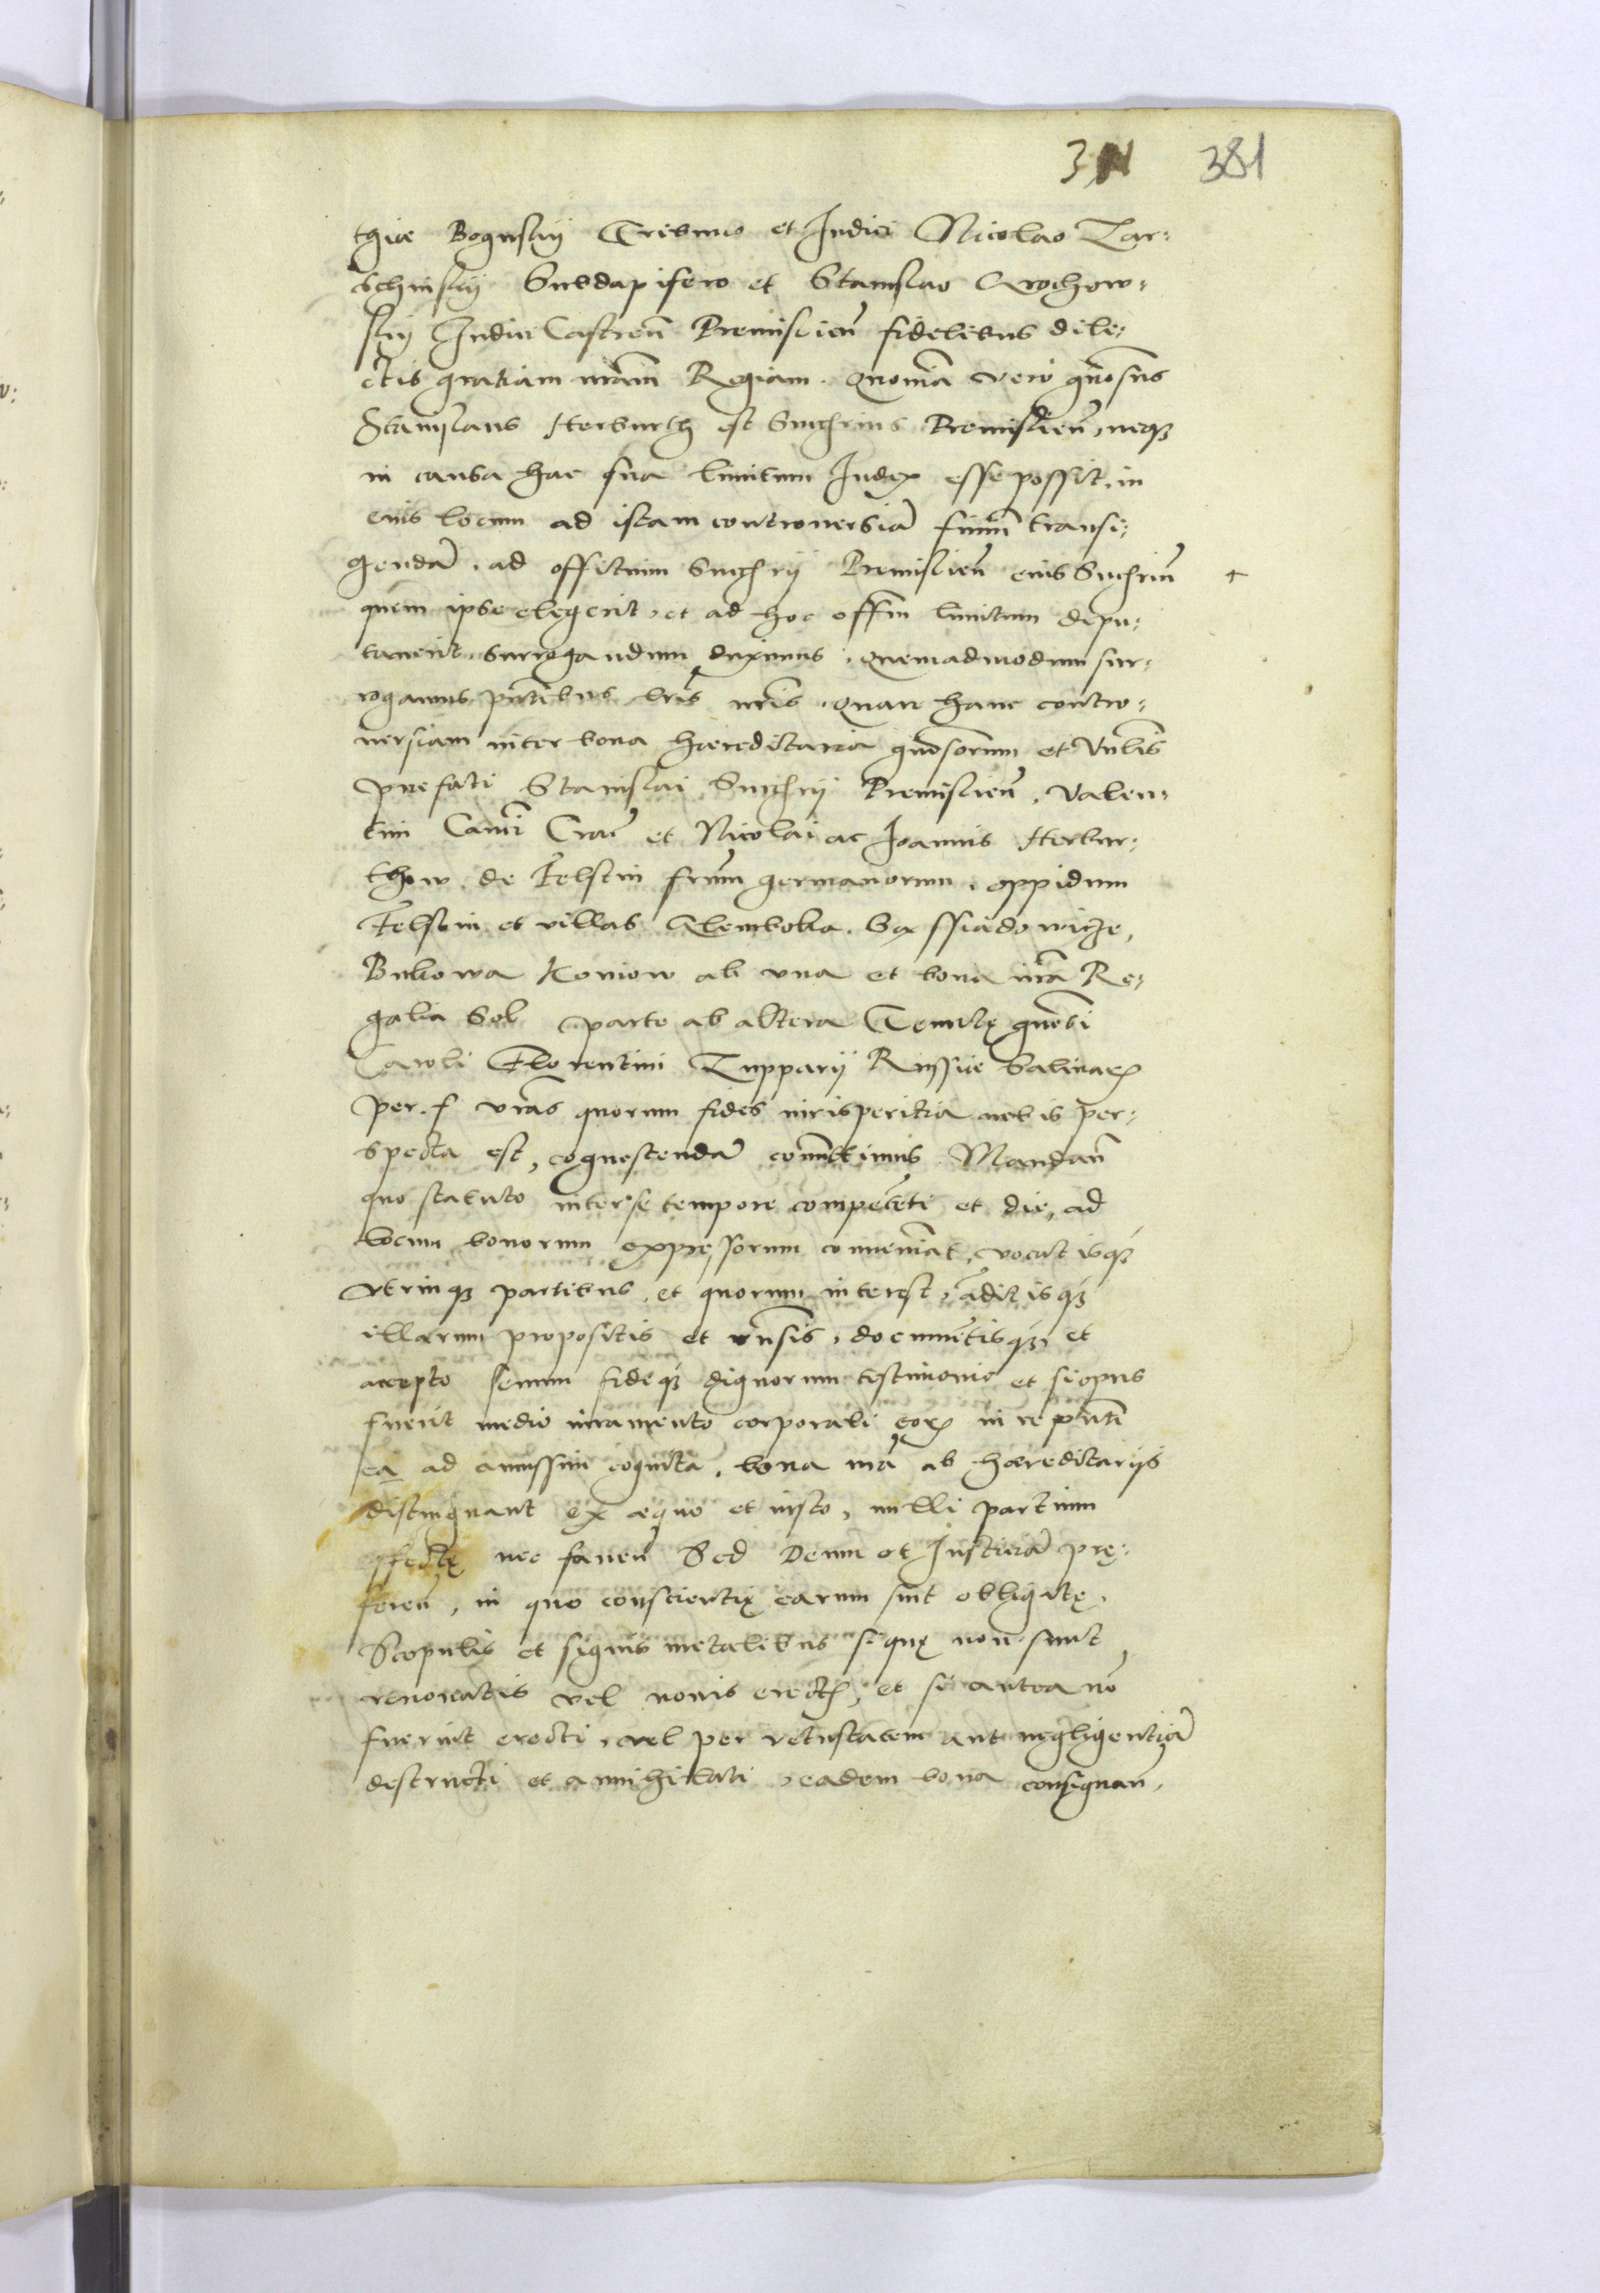 381
thiæ Boguskij Tribuno et Iudici Nicolao Zar:
schinskij Subdapifero et Stanislao Orochow:
skij Iudici Castren̄ Premislien̄ fidelibus dile:
ctis gratiam nr̄am Regiam. Quoniā vero gn̄osus
Stanislaus Herburth est Succ̄rius Premislien̄, neq3
in causa hac sua limitum Iudex esse possit, in
eius locum ad istam controuersiā finiū transi:
gendā, ad officium Succ̄rij Premislien̄ eius Succ̄riū +
quem ipse elegerit, et ad hoc off̄m limitum depu:
tauerit, surrogandum duximus, quemadmodum sur:
rogamus pn̄tibus lr̄is nr̄is. Quare hanc contro:
uersiam inter bona hæreditaria gn̄osorum et
prefati Stanislai Succ̄rij Premislien̄, Valen:
tini Can̄ci Crac̄ et Nicolai ac Ioannis Herbur:
thow de Felstin fr̄um germanorum, oppidum
Felstin et villas Glemboka, Szassiadowicze,
Bukowa Koniow ab vna et bona nr̄a Re:
galia Sol parte ab altera Tenutę gn̄osi
Caroli Florentini Zupparij Russiæ Salinar̄
per f. vr̄as quorum fides iurisperitia nobis per:
specta est, cognoscendā com̄ittimus. Mandan̄
quo statuto inter se tempore competēti et die, ad
locum bonorum expressorum conueniāt, vocatisq3
vtrinq3 partibus, et quorum interest, auditisq3
illarum propositis et rn̄sis, documētisq3, et
accepto senum fideq3 dignorum testimonio et si opus
fuerit medio iuramento corporali eor̄ in re pn̄ti
ea ad amussim cognita, bona nr̄a ab hæreditarijs
distinguant ex æquo et iusto, nulli partium
affectę nec fauen̄ Sed Deum et Iusticiā prę:
feren̄, in quo conscientię earum sint obligatę.
Scopulis et signis metalibus si quę non sunt
renouatis vel nouis erect̄, et si antea nō
fuerint erecti, vel per vetustatem aut negligentiā
destructi et annihilati, eadem bona consignan̄,